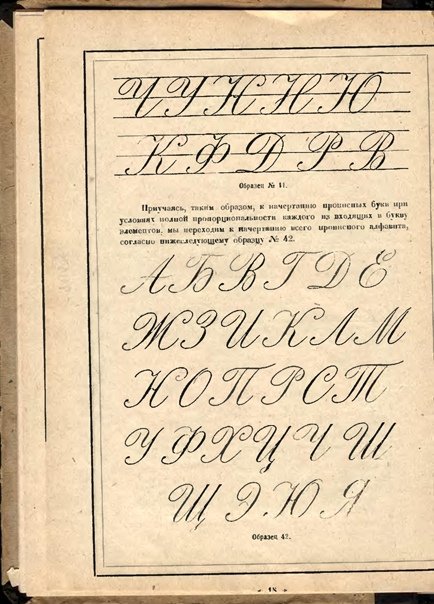 Ч У Н Н Ю
К Ф Д Р В
Образец № 41.
Приучаясь, таким образом, к начертанию прописных букв при
условиях полной пропорциональности каждого из входящих в букву
элементов, мы переходим к начертанию всего прописного алфавита,
согласно нижеследующему образцу № 42.
А Б В Г Д Е
Ж З И К Л М
Н О П Р С Т
У Ф Х Ц Ч Ш
Щ Э Ю Я
Образец 42.
48